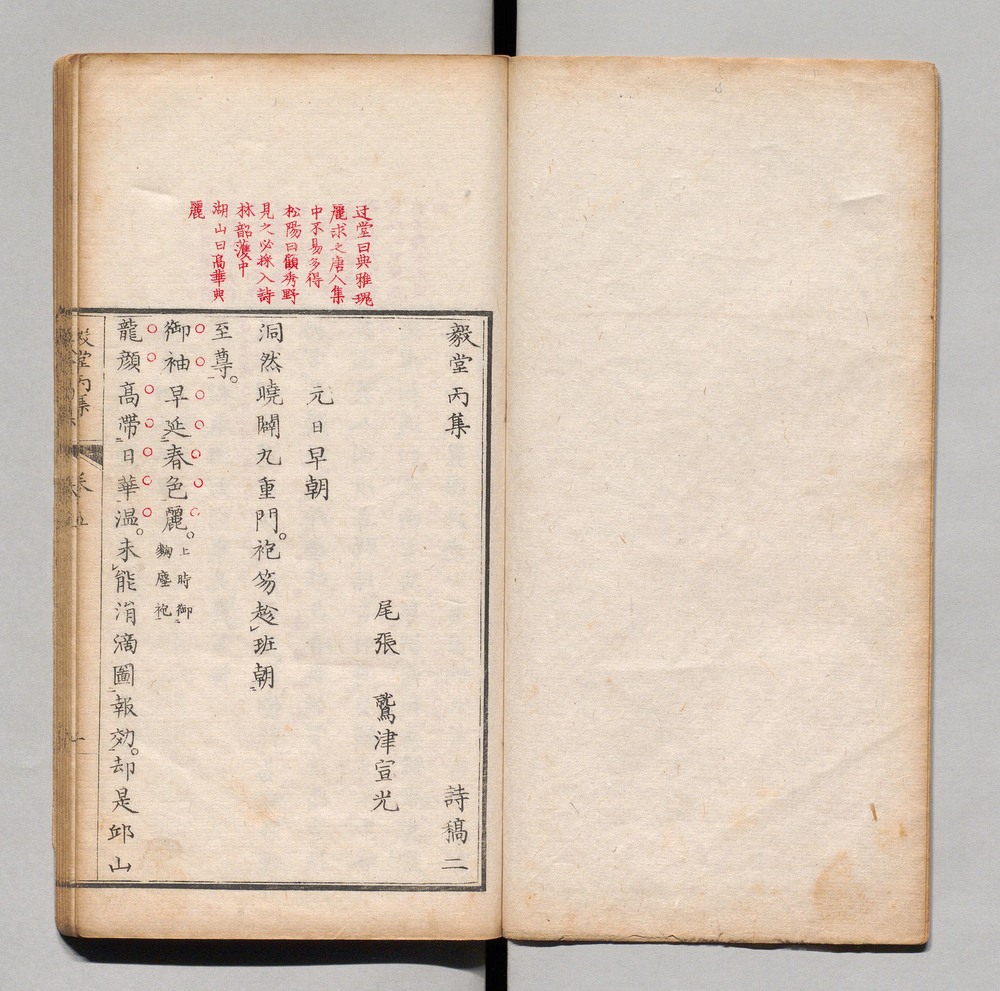 毅堂丙集　詩稿二
尾張　鷲津宣光
元日早朝
洞然曉闢九重門。袍笏趁班朝
至尊。
御袖早延春色麗。上時御麴塵袍
龍顏高帶日華温。未能涓滴圖報効。却是邱山
迂堂曰典雅瑰
麗求之唐人集
中不易多得
松陽曰顧秀野
見之必採入詩
林韶濩中
湖山曰高華典
麗
毅堂丙集　卷五　一